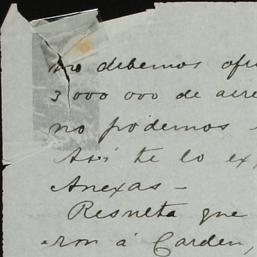 no debemos ofre
3 000 000 de acre
no podemos
Asi te lo ex
Anexas –
Resulta que
eron á Carden,